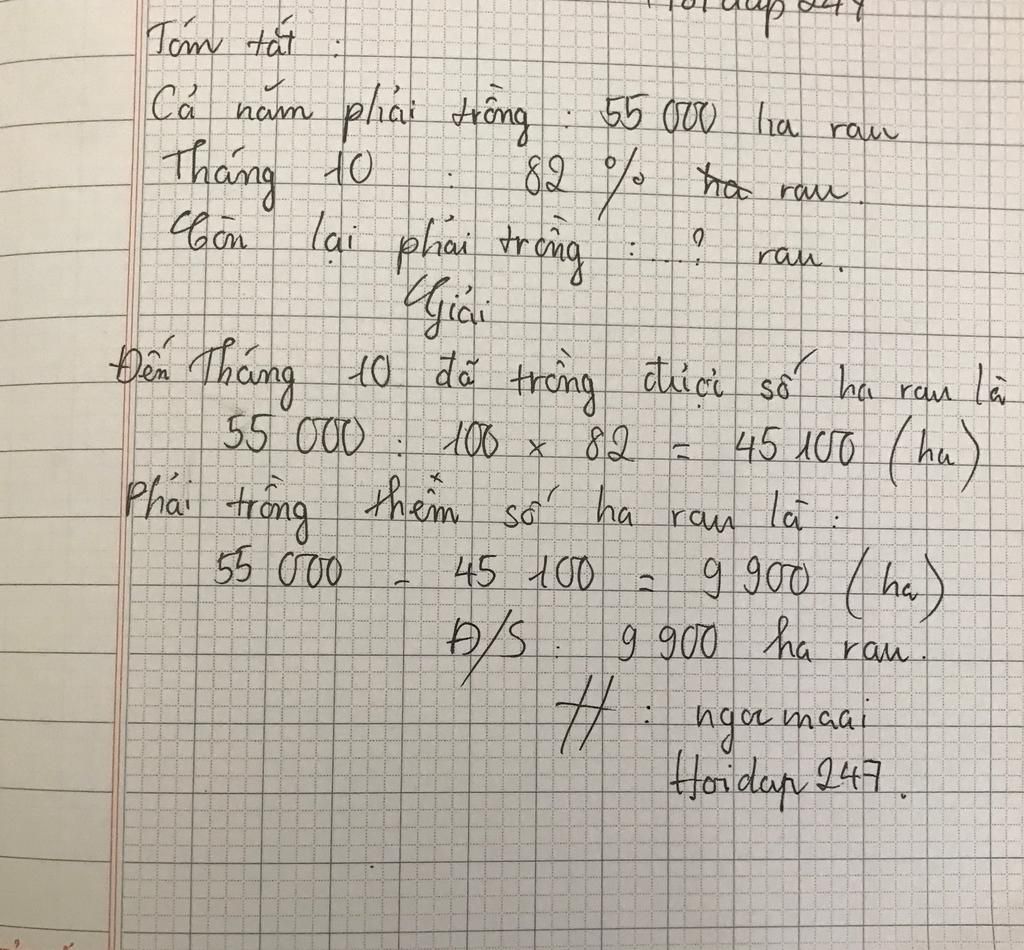 Hoidap 247
Tóm tắt :
Cả năm phải trồng : 55 000 ha rau
Tháng 10 : 82 % ha rau.
Còn lại phải trồng : ....? rau.
Giải
Đến Tháng 10 đã trồng được số ha rau là
55 000 : 100 x 82 = 45 100 (ha)
Phải trồng thêm số ha rau là :
55 000 - 45 100 = 9 900 (ha)
Đ/S : 9 900 ha rau.
# : ngocmaai
Hoidap 247.